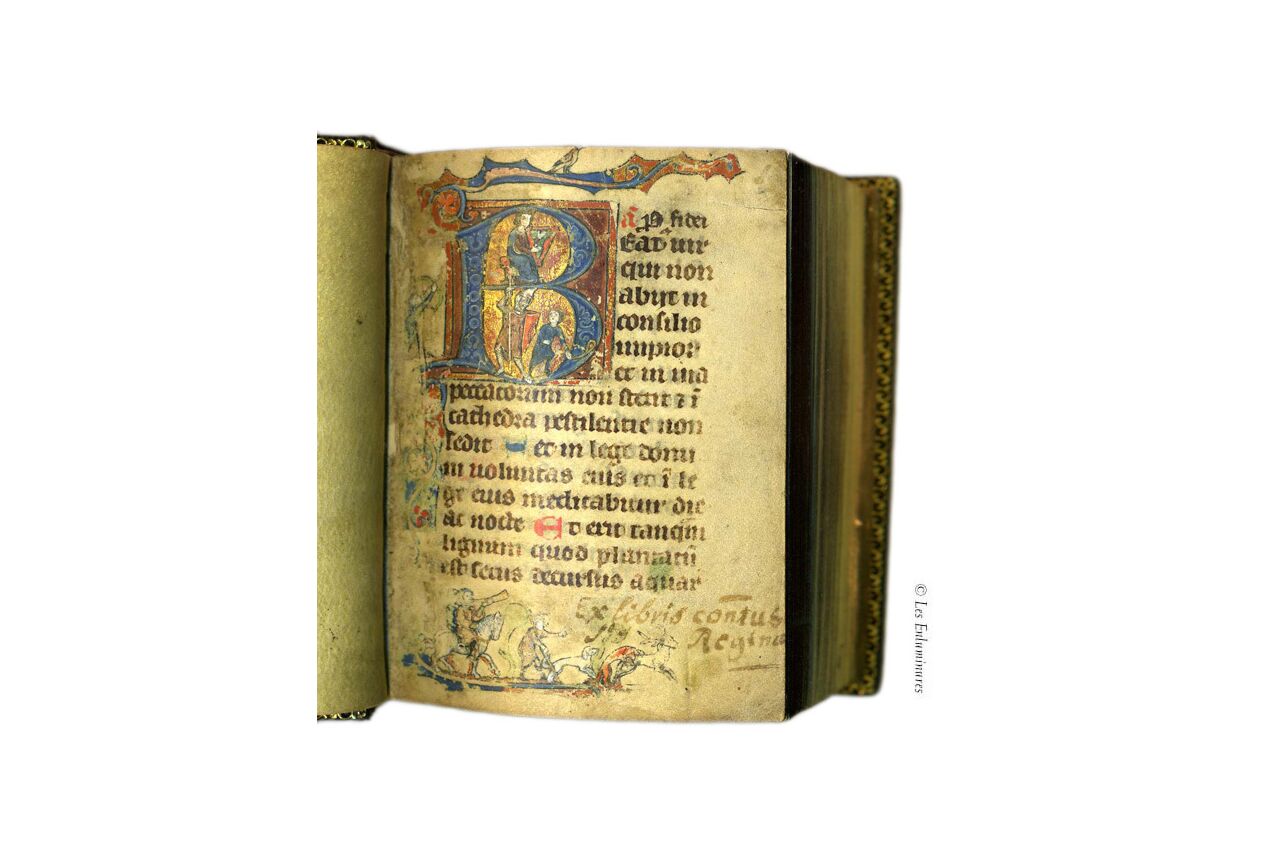 B
ā. P. fidei
EAT' uir
qui non
abijt in
consilio
impior
et in uia
peccatorum non stetit ⁊ ī
cathedra pestilentie non
sedit et in lege domi
ni uoluntas eius et ī le
ge eius meditabitur die
ac nocte Et erit tanqm̄
lignum quod plantatū
est secus decursus aquar
Ex libris con̄tus
Regina
© Les Enluminures